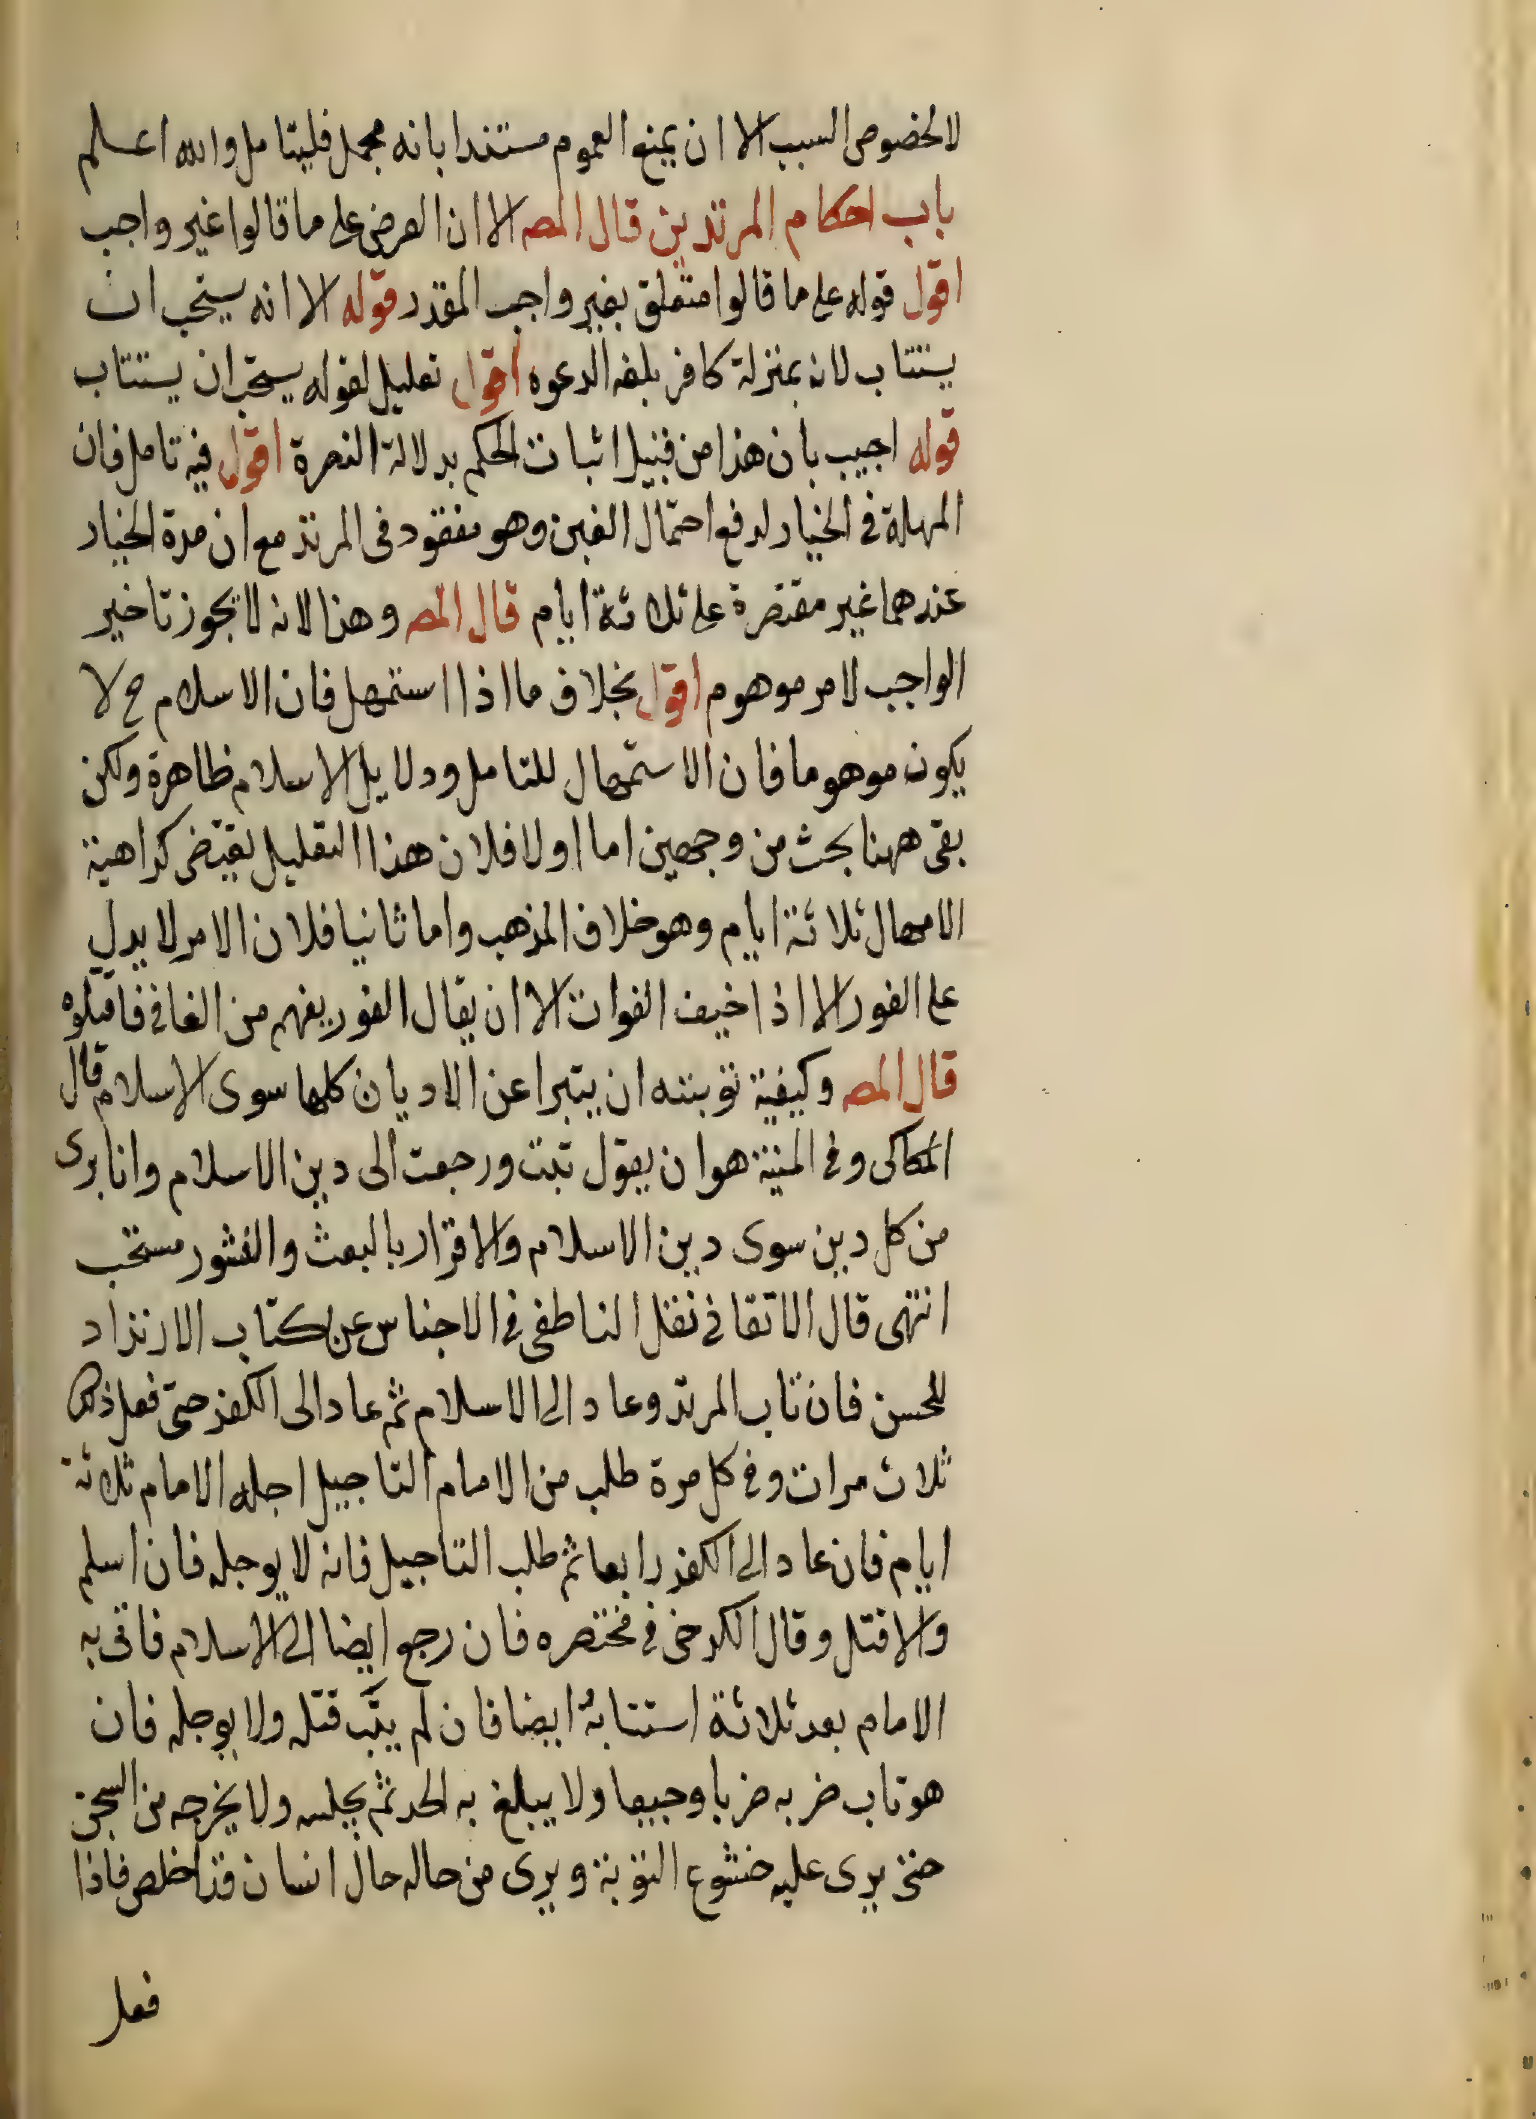 لا لخصوص السبب الا ان يمنع العموم مستندا بانه مجمل فليتامل والله اعلم
باب احكام المرتدين قال المصـ الا ان العرض على ما قالوا غير واجب
اقول قوله على ما قالوا متعلق بغير واجب المقدر قوله الا انه يستحب ان
يستتاب لانه بمنزلة كافر بلغه الدعوه اقول تعليل لقوله يستحب ان يستتاب
قوله اجيب بان هذا من قبيل اثبات الحكم بدلالة النص اقول فيه تامل فان
المهلة في الخيار لدفع احتمال الغبن وهو مفقود في المرتد مع ان مدة الخيار
عندهما غير مقتصرة على ثلاثة ايام قال المصـ وهذا لانه لا يجوز تاخير
الواجب لامر موهوم اقول بخلاف ما اذا استمهل فان الاسلام ح لا
يكون موهوما فان الاستمهال للتامل ودلايل الاسلام ظاهرة ولكن
بقى ههنا بحث من وجهين اما اولا فلان هذا التعليل يقتضى كراهية
الامهال ثلاثة ايام وهو خلاف المذهب واما ثانيا فلان الامر لا يدل
على الفور الا اذا خيف الفوات الا ان يقال الفور يفهم من الفا في فاقتلوه
قال المصـ وكيفية توبته ان يتبرا عن الاديان كلها سوى الاسلام قال
الكاكى وفي المنية هو ان يقول تبت ورجعت الى دين الاسلام وانا برى
من كل دين سوى دين الاسلام والاقرار بالبعث والنشور مستحب
انتهى قال الاتقانى نقل الناطفى في الاجناس عن كتاب الارتداد
للحسن فان تاب المرتد وعاد الى الاسلام ثم عاد الى الكفر حتى فعل ذلك
ثلاث مرات وفي كل مرة طلب من الامام التاجيل اجله الامام ثلاثة
ايام فان عاد الى الكفر رابعا ثم طلب التاجيل فانه لا يوجله فان اسلم
والا قتل وقال الكرخى في مختصره فان رجع ايضا الى الاسلام فاتى به
الامام بعد ثلاثة استتابه ايضا فان لم يتب قتله ولا يوجله فان
هو تاب ضربه ضربا وجيعا ولا يبلغ به الحد ثم يحبسه ولا يخرجه من السجن
حتى يرى عليه خشوع التوبة ويرى من حاله حال انسان قد اخلص فاذا
فعل